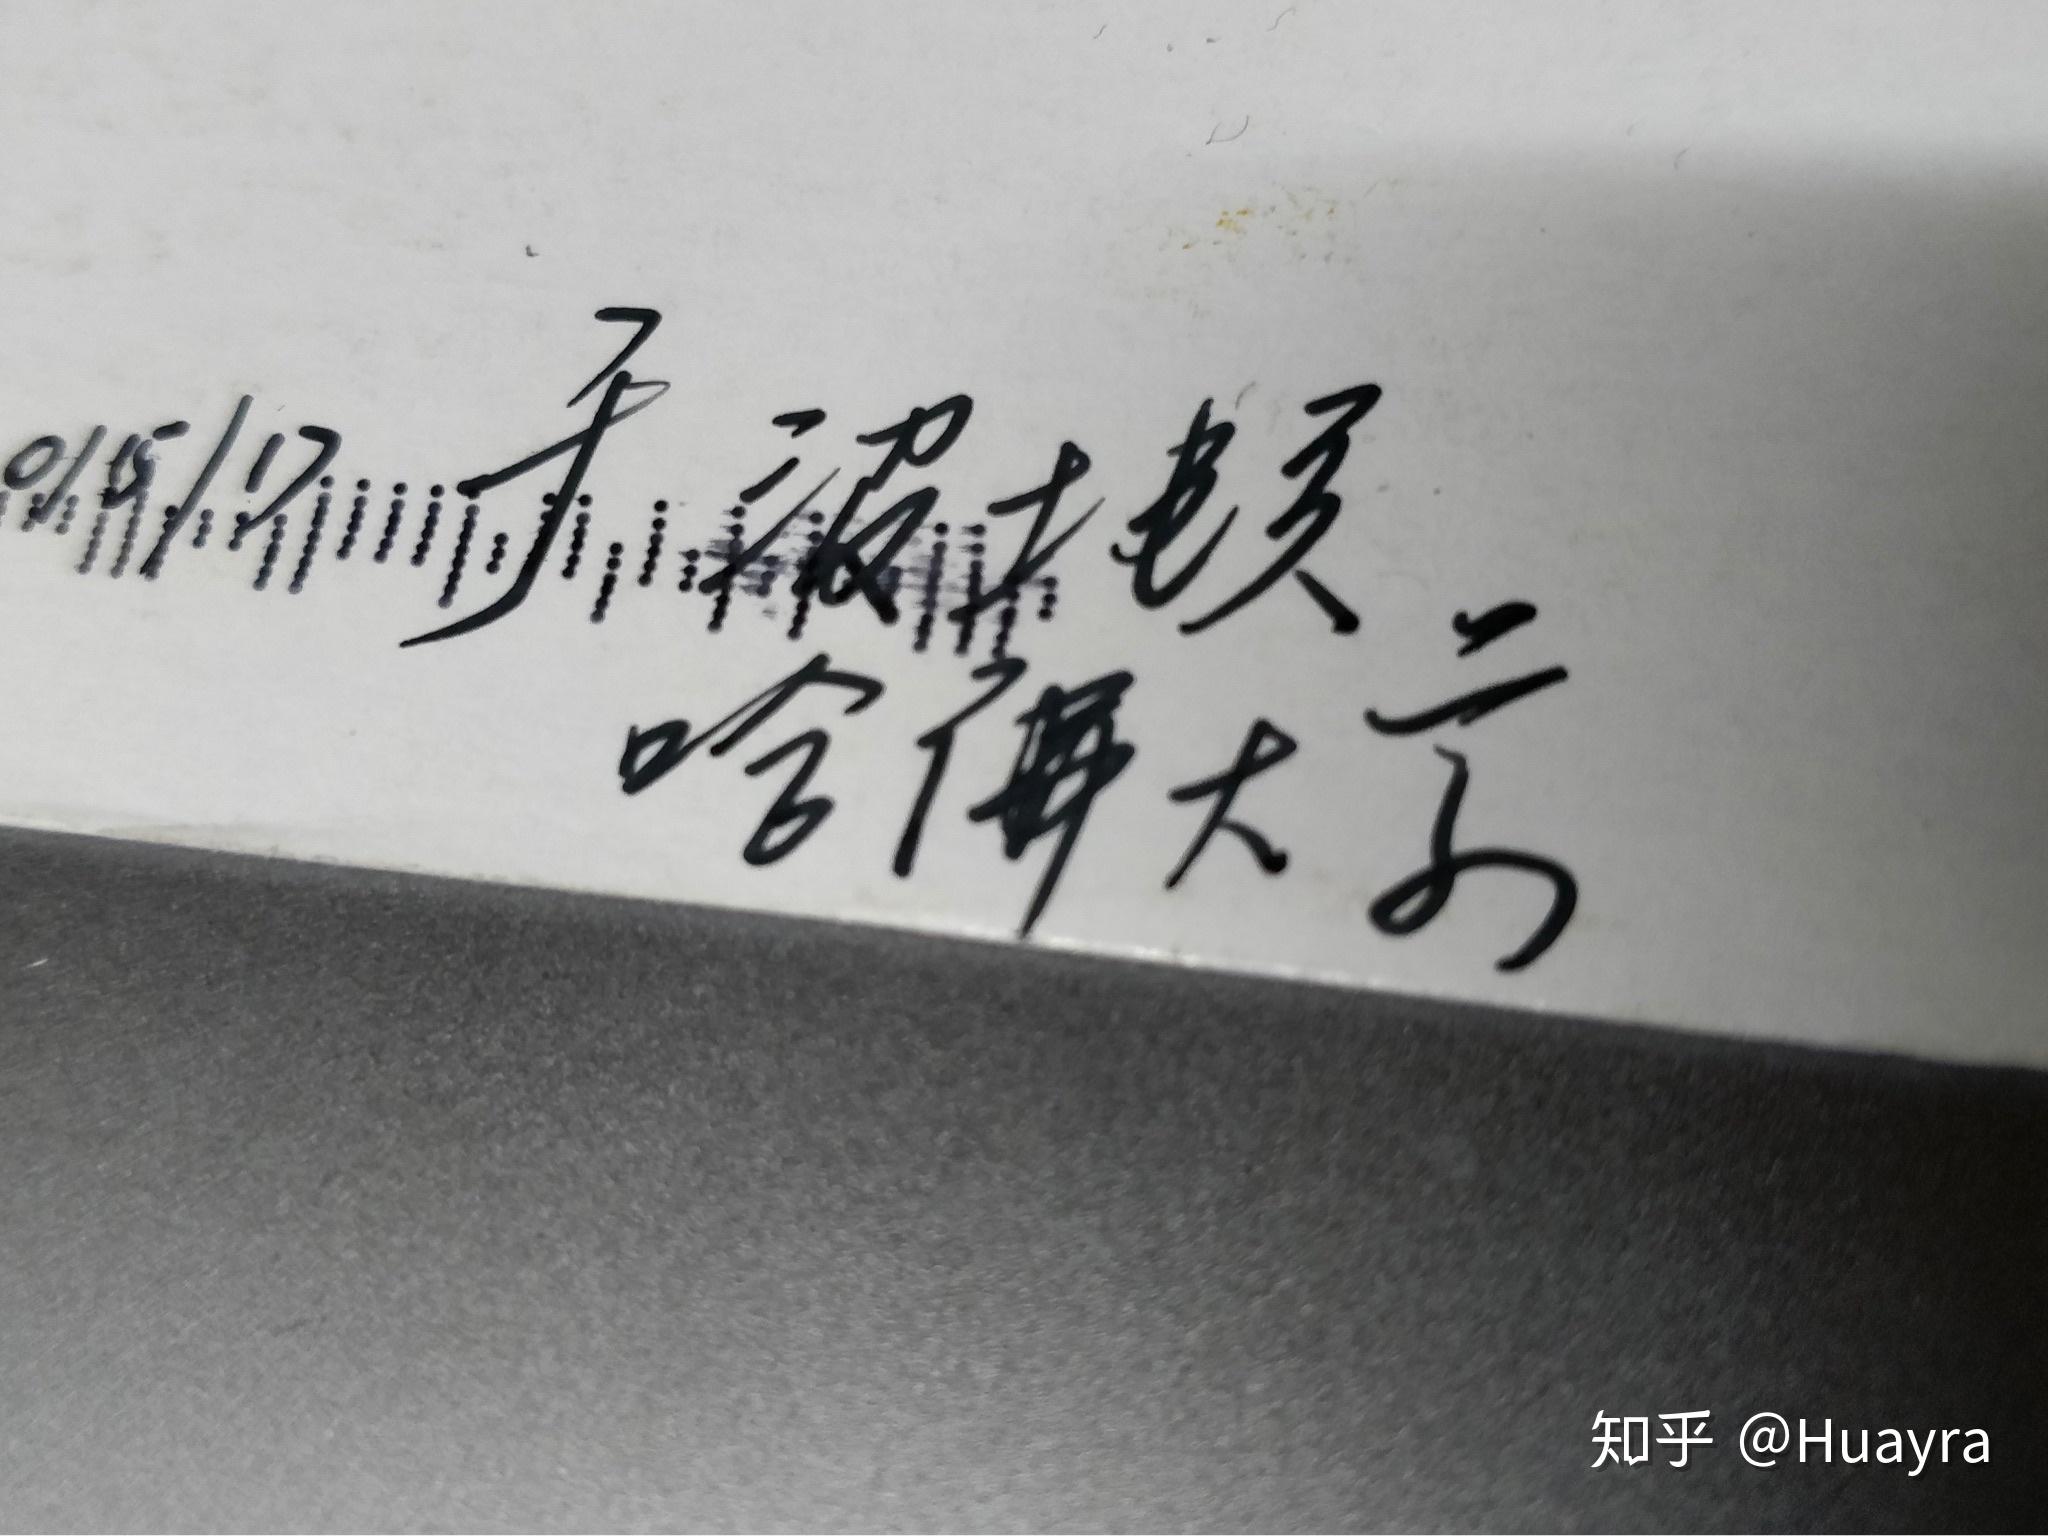 0/15/17 于波士顿
哈佛大学
知乎 @Huayra